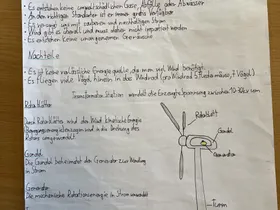 • Es entstehen keine umweltschädlichen Gase, Abfälle oder Abwasser
• An den richtigen Standorten ist er immer gratis verfügbar
• Es versorgt uns mit sauberem und nachhaltigem Strom
• Wind gibt es überall und muss daher nicht importiert werden
• Es entstehen keine unangenehmen Gerüche
Nachteile
• Es ist keine verlässliche Energiequelle, da man viel Wind benötigt
• Es fliegen viele Vögel hinein in das Windrad (pro Windrad 5 Fledermäuse, Vögel)
Transformator Station wandelt die Energie Spannung zwischen 10-
Rotorblätter
Rotorblatt
Gondel
Generator
Durch Rotorblätter wird der Wind kinetische Energie
in die Drehung des
Rotors umgewandelt
Gondel
Die Gondel beheimatet den Generator zur Wandlung
in Strom
Generator
Die mechanische Rotationsenergie in Strom umwandelt
Turm